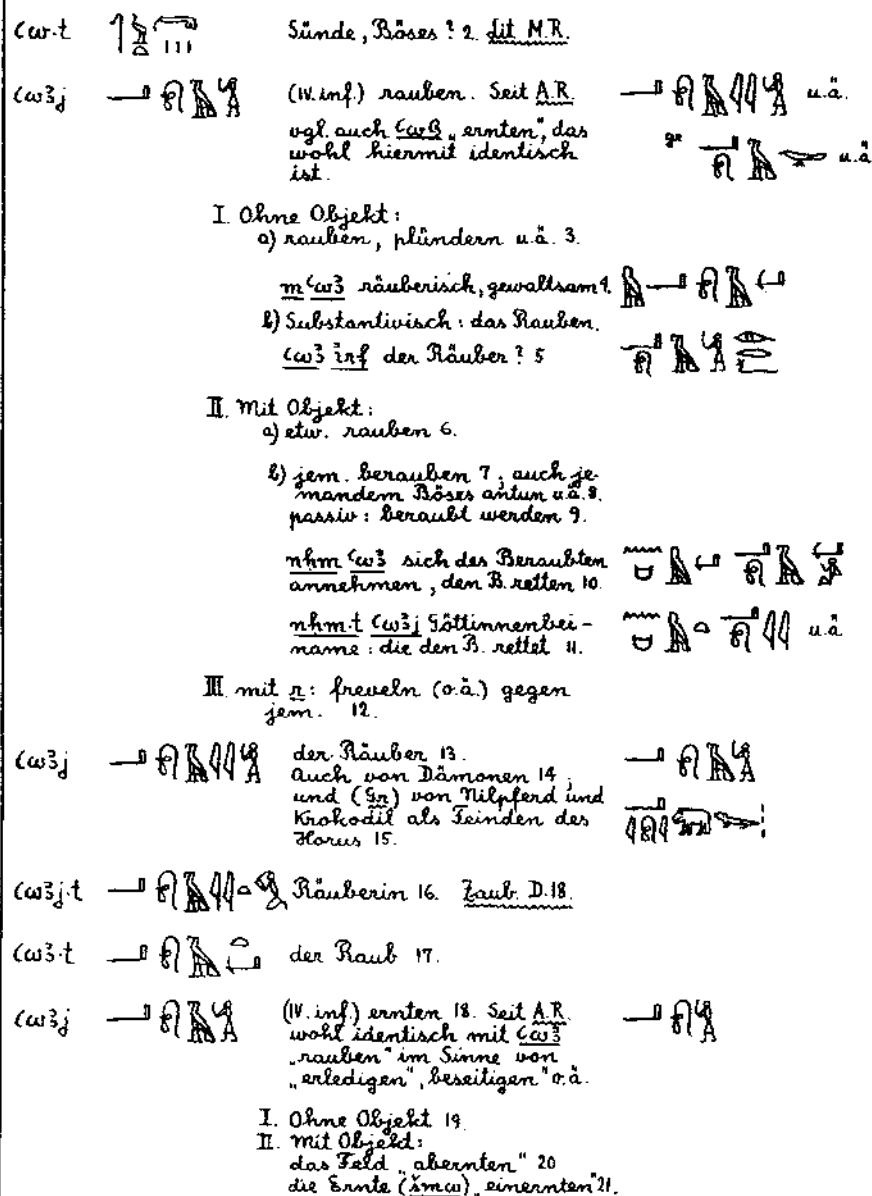 ꜥw.t Sünde, Böses? 2. Lit. M.R.
ꜥwꜣj (IV. inf.) rauben. Seit A.R. u.ä.
vgl. auch ꜥwꜣ „ernten", das gr u.ä
wohl hiermit identisch
ist.
I. Ohne Objekt:
a) rauben, plündern u.ä. 3.
m ꜥwꜣ räuberisch, gewaltsam 4.
b) Substantivisch: das Rauben.
ꜥwꜣ irf der Räuber? 5
II. Mit Objekt:
a) etw. rauben 6.
b) jem. berauben 7; auch je-
mandem Böses antun u.ä. 8.
passiv: beraubt werden 9.
nḥm ꜥwꜣ sich des Beraubten
annehmen, den B. retten 10.
nḥm.t ꜥwꜣj Göttinnenbei-
name: die den B. rettet 11. u.ä
III mit r: freveln (o.ä.) gegen
jem. 12.
ꜥwꜣj der Räuber 13.
Auch von Dämonen 14;
und (Gr) von Nilpferd und
Krokodil als Feinden des
Horus 15.
ꜥwꜣj.t Räuberin 16. Zaub. D.18.
ꜥwꜣ.t der Raub 17.
ꜥwꜣj (IV. inf.) ernten 18. Seit A.R.
wohl identisch mit ꜥwꜣ
„rauben" im Sinne von
„erledigen", beseitigen" o.ä.
I. Ohne Objekt 19
II. Mit Objekt:
das Feld „abernten" 20
die Ernte (šmw) „einernten" 21.